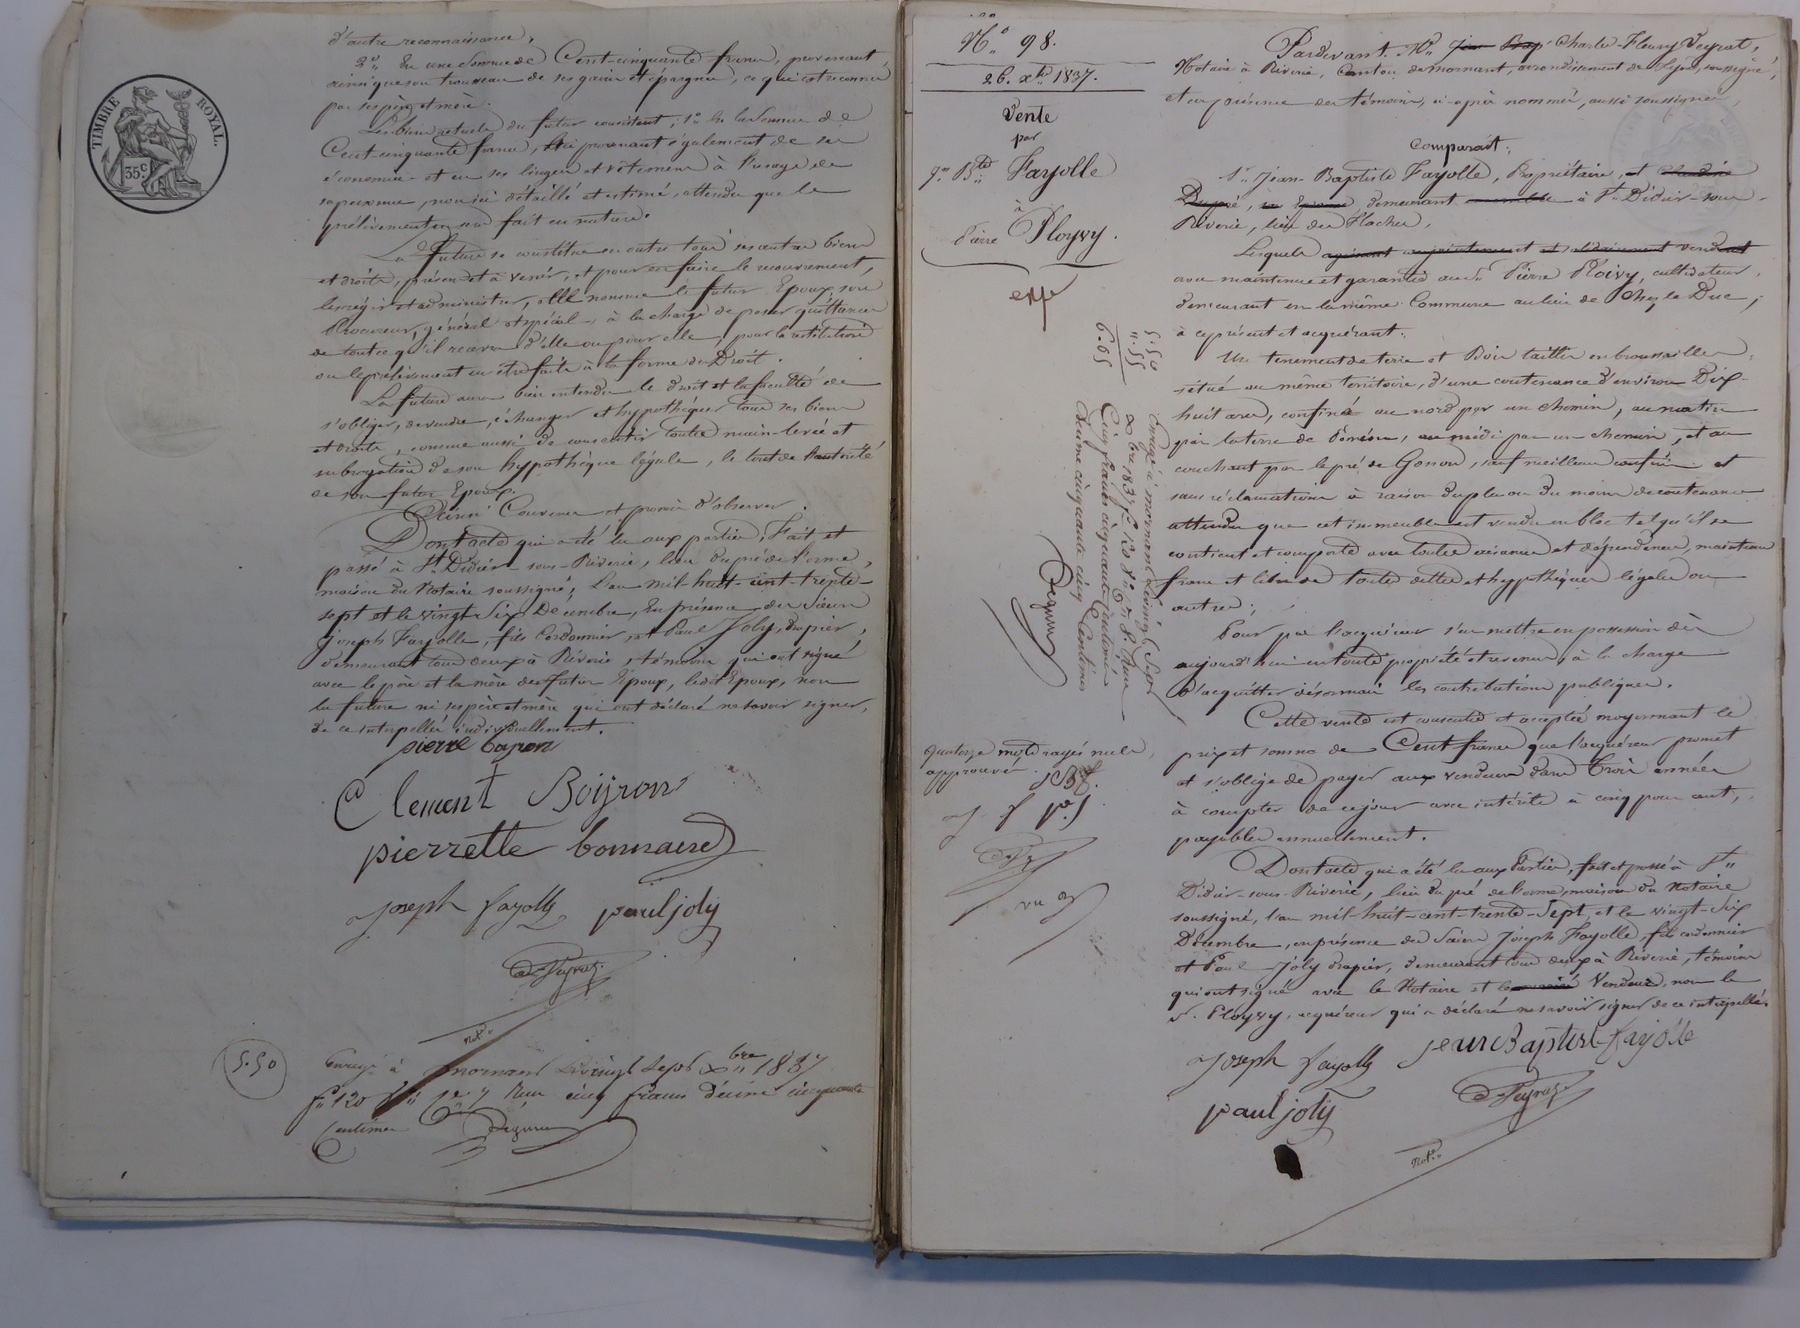 TIMBRE ROYAL
35c.
d'autre reconnaissance,
2° En une somme de Cent-cinquante francs, provenant,
ainsi que son trousseau de ses gains et épargnes, ce qui est reconnu
par ses père et mère.
Les biens actuels du futur consistent, 1° En la somme de
Cent-cinquante francs, provenant également de ses
économies et en ses linges et vêtements à l'usage de
sa personne, non ici détaillés et estimés, attendu que le
prélèvement en sera fait en nature.
La future se constitue en outre tous ses autres biens
et droits, présents et à venir, et pour en faire le recouvrement,
les régir et administrer, elle nomme le futur Epoux, son
Procureur général et spécial, à la charge de passer quittance
de tout ce qu'il recevra d'elle ou pour elle, pour la restitution
ou le prélèvement en être faits à la forme du Droit.
La future aura bien entendu le droit et la faculté de
s'obliger, de vendre, échanger et hypothéquer tous ses biens
et droits, comme aussi de consentir toutes main-levée et
subrogation de son hypothèque légale, le tout de l'autorité
de son futur Epoux.
Ainsi Convenu et promis d'observer.
Dont acte qui a été lu aux parties, Fait et
passé à St. Didier-sous-Riverie, lieu du pré de l'orme,
maison du Notaire soussigné, L'an mil-huit-cent-trente-
sept et le vingt-six Décembre, En présence des Sieurs
Joseph Fayolle, fils Cordonnier, et Paul Joly, drapier,
demeurant tous deux à Riverie, témoins qui ont signé
avec le père et la mère du futur Epoux, ledit Epoux, non
la future ni ses père et mère qui ont déclaré ne savoir signer,
de ce interpellés individuellement.
pierre
Clement Boiyron
pierrette bonnaire
Joseph fayolle pauljoly
Veyrat
Not.re
5.50
Enregé à Mornant le vingt sept Xbre 1837
f° 120 Reçu cinq francs décime cinquante
Centimes
N° 98.
26. Xbre 1837.
Vente
par
Jn Bte Fayolle
à
Pierre Ployvy.
expe
5.50
". 55
6.05
Enregé à Mornant le vingt Sept
Xbre 1837 Reçu
Cinq francs cinquante Centimes
Décime cinquante cinq Centimes
Quatorze mots rayés nuls,
approuvés.
JBf.
J f P. J
Pardevant Me Jean Bap Charles-Fleury Veyrat,
Notaire à Riverie, Canton de Mornant, arrondissement de Lyon, soussigné,
et en présence des témoins, ci-après nommés, aussi soussignés,
Comparait:
Sr Jean-Baptiste Fayolle, Propriétaire, et Claudine
Dupré, sa Epouse, demeurant ensemble à St Didier-sous-
Riverie, lieu des Flaches,
Lesquels agissant conjointement et solidairement vendent
avec maintenue et garantie au Sr Pierre Ploivy, cultivateur,
demeurant en la même Commune au lieu de Chez le Duc,
à ce présent et acquérant:
Un tenement de terre et Bois taillis en broussailles
situé au même territoire, d'une contenance d'environ Dix-
huit ares, confiné au nord par un chemin, au matin
par la terre de , au midi par un chemin, et au
couchant par le pré de Gonon, sauf meilleurs confins et
sans réclamations à raison du plus ou du moins de contenance
attendu que cet immeuble est vendu en bloc et tel qu'il se
contient et comporte avec toutes aisances et dépendances, maintenu
franc et libre de toutes dettes et hypothèques légales ou
autres;
Pour par l'acquéreur s'en mettre en possession dès
aujourd'hui en toute propriété et revenus, à la charge
d'acquitter désormais les contributions publiques.
Cette vente est consentie et acceptée moyennant le
prix et somme de Cent francs que l'acquéreur promet
et s'oblige de payer aux vendeurs dans trois années
à compter de ce jour avec intérêts à cinq pour cent,
payables annuellement.
Dont acte qui a été lu aux Parties, fait et passé à St
Didier-sous-Riverie, lieu du pré de l'orme, maison du Notaire
soussigné, l'an mil-huit-cent-trente-Sept, et le vingt-six
Décembre, en présence des Sieurs Joseph Fayolle, fils cordonnier
et Paul Joly drapier, demeurant tous deux à Riverie, témoins
qui ont signé avec le Notaire et le Vendeur, non le
Sr. Ployvy, acquéreur qui a déclaré ne savoir signer de ce interpellé.
Joseph fayolle jean Baptiste fayolle
pauljoly
Veyrat
Not.re